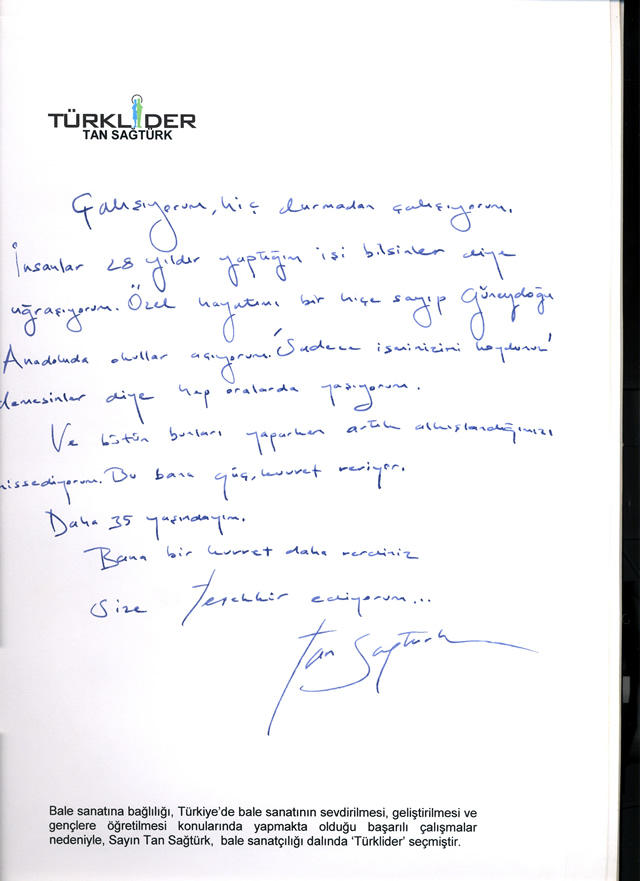 TÜRKLİDER
TAN SAĞTÜRK
Çalışıyorum, hiç durmadan çalışıyorum.
İnsanlar 28 yıldır yaptığım işi bilsinler diye
uğraşıyorum. Özel hayatımı bir hiçe sayıp Güneydoğu
Anadoluda okullar açıyorum. 'Sadece isminizimi koydunuz'
demesinler diye hep oralarda yaşıyorum.
Ve bütün bunları yaparken artık alkışlandığımızı
hissediyorum. Bu bana güç, kuvvet veriyor.
Daha 35 yaşındayım.
Bana bir kuvvet daha verdiniz
Size Teşekkür ediyorum...
Tan Sağtürk
Bale sanatına bağlılığı, Türkiye'de bale sanatının sevdirilmesi, geliştirilmesi ve
gençlere öğretilmesi konularında yapmakta olduğu başarılı çalışmalar
nedeniyle, Sayın Tan Sağtürk, bale sanatçılığı dalında 'Türklider' seçmiştir.